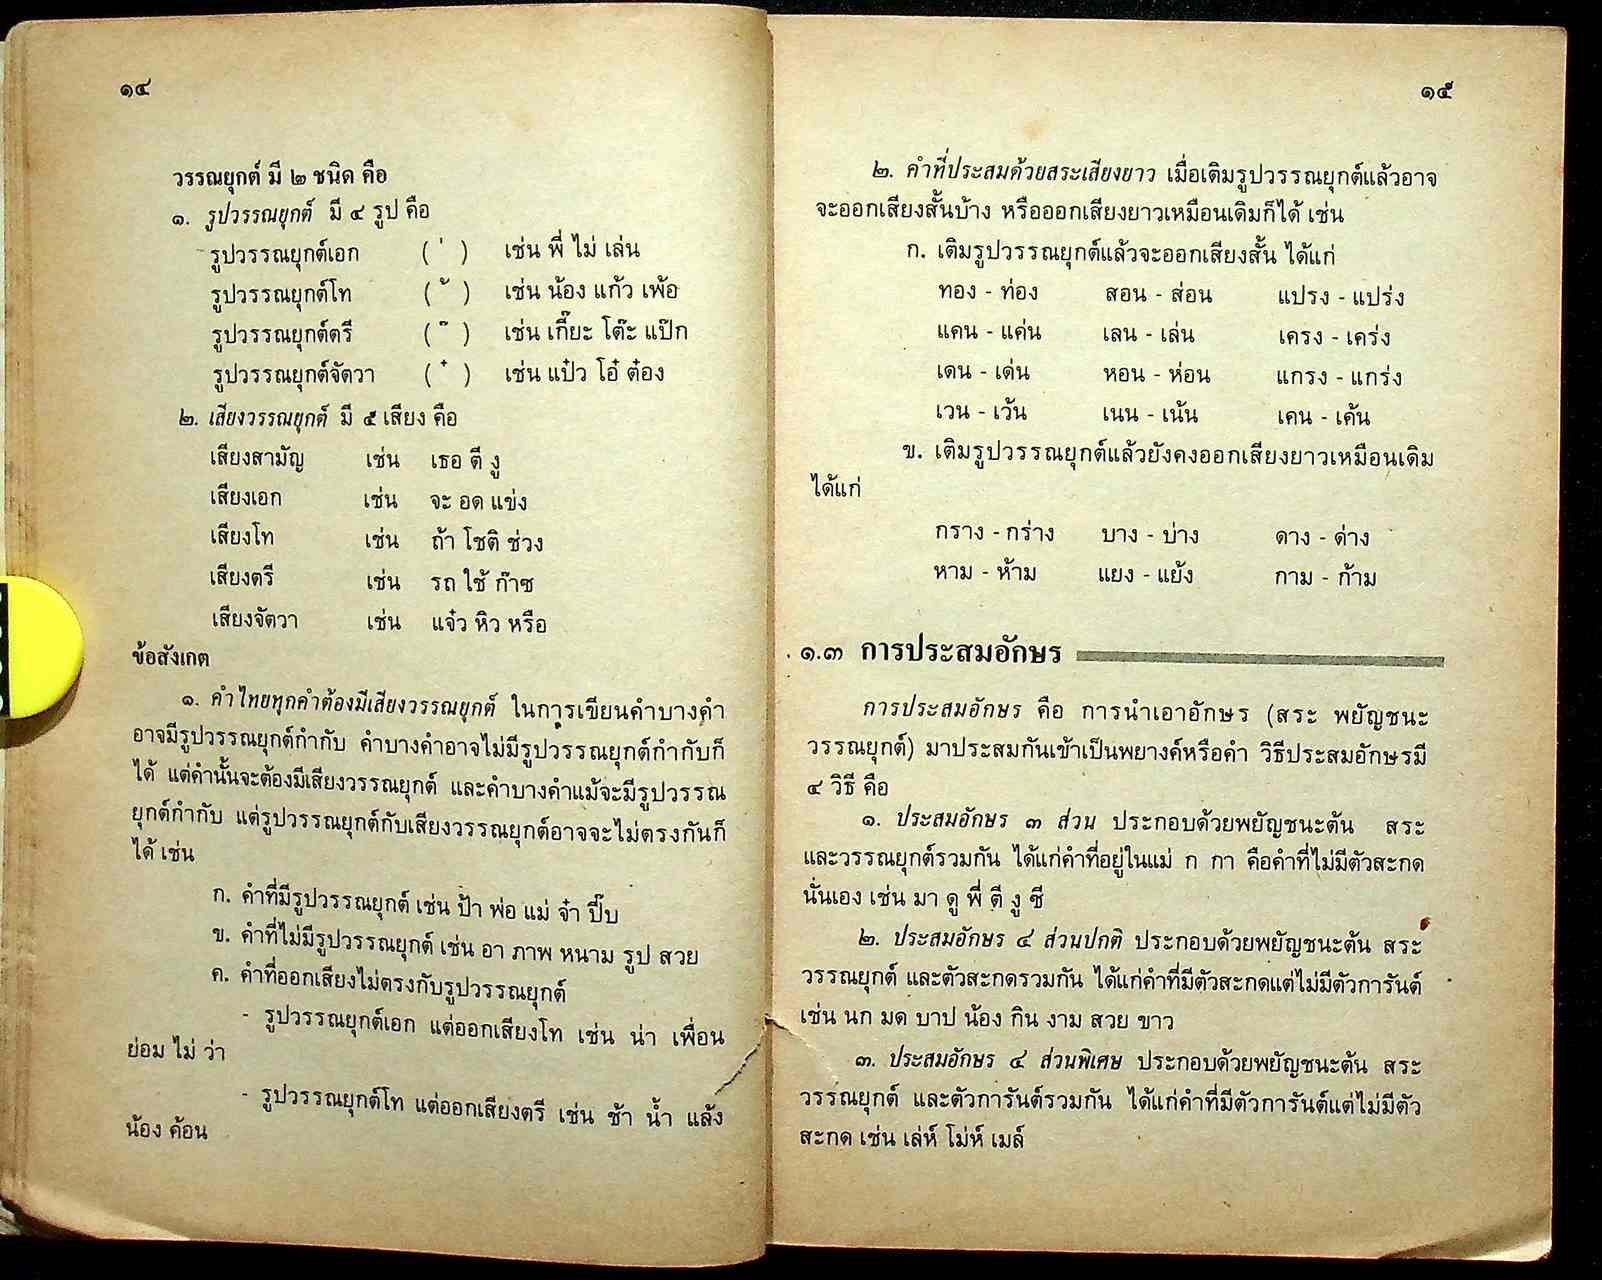 ๑๔
วรรณยุกต์ มี ๒ ชนิด คือ
๑. รูปวรรณยุกต์ มี ๔ รูป คือ
รูปวรรณยุกต์เอก ( ่ ) เช่น พี่ ไม่ เล่น
รูปวรรณยุกต์โท ( ้ ) เช่น น้อง แก้ว เพ้อ
รูปวรรณยุกต์ตรี ( ๊ ) เช่น เกี๊ยะ โต๊ะ แป๊ก
รูปวรรณยุกต์จัตวา ( ๋ ) เช่น แป๋ว โอ๋ ต๋อง
๒. เสียงวรรณยุกต์ มี ๕ เสียง คือ
เสียงสามัญ เช่น เธอ ตี งู
เสียงเอก เช่น จะ อด แข่ง
เสียงโท เช่น ถ้า โชติ ช่วง
เสียงตรี เช่น รถ ใช้ ก๊าซ
เสียงจัตวา เช่น แจ๋ว หิว หรือ
ข้อสังเกต
๑. คำไทยทุกคำต้องมีเสียงวรรณยุกต์ ในการเขียนคำบางคำ
อาจมีรูปวรรณยุกต์กำกับ คำบางคำอาจไม่มีรูปวรรณยุกต์กำกับก็
ได้ แต่คำนั้นจะต้องมีเสียงวรรณยุกต์ และคำบางคำแม้จะมีรูปวรรณ
ยุกต์กำกับ แต่รูปวรรณยุกต์กับเสียงวรรณยุกต์อาจจะไม่ตรงกันก็
ได้ เช่น
ก. คำที่มีรูปวรรณยุกต์ เช่น ป้า พ่อ แม่ จ๋า ปี๊บ
ข. คำที่ไม่มีรูปวรรณยุกต์ เช่น อา ภาพ หนาม รูป สวย
ค. คำที่ออกเสียงไม่ตรงกับรูปวรรณยุกต์
- รูปวรรณยุกต์เอก แต่ออกเสียงโท เช่น น่า เพื่อน
ย่อม ไม่ ว่า
- รูปวรรณยุกต์โท แต่ออกเสียงตรี เช่น ช้า น้ำ แล้ง
น้อง ค้อน
๑๕
๒. คำที่ประสมด้วยสระเสียงยาว เมื่อเติมรูปวรรณยุกต์แล้วอาจ
จะออกเสียงสั้นบ้าง หรือออกเสียงยาวเหมือนเดิมก็ได้ เช่น
ก. เติมรูปวรรณยุกต์แล้วจะออกเสียงสั้น ได้แก่
ทอง - ท่อง สอน - ส่อน แปรง - แปร่ง
แคน - แค่น เลน - เล่น เครง - เคร่ง
เดน - เด่น หอน - ห่อน แกรง - แกร่ง
เวน - เว้น เนน - เน้น เคน - เค้น
ข. เติมรูปวรรณยุกต์แล้วยังคงออกเสียงยาวเหมือนเดิม
ได้แก่
กราง - กร่าง บาง - บ่าง ดาง - ด่าง
หาม - ห้าม แยง - แย้ง กาม - ก้าม
๑.๓ การประสมอักษร
การประสมอักษร คือ การนำเอาอักษร (สระ พยัญชนะ
วรรณยุกต์) มาประสมกันเข้าเป็นพยางค์หรือคำ วิธีประสมอักษรมี
๔ วิธี คือ
๑. ประสมอักษร ๓ ส่วน ประกอบด้วยพยัญชนะต้น สระ
และวรรณยุกต์รวมกัน ได้แก่คำที่อยู่ในแม่ ก กา คือคำที่ไม่มีตัวสะกด
นั่นเอง เช่น มา ดู พี่ ตี งู ซี
๒. ประสมอักษร ๔ ส่วนปกติ ประกอบด้วยพยัญชนะต้น สระ
วรรณยุกต์ และตัวสะกดรวมกัน ได้แก่คำที่มีตัวสะกดแต่ไม่มีตัวการันต์
เช่น นก มด บาป น้อง กิน งาม สวย ขาว
๓. ประสมอักษร ๔ ส่วนพิเศษ ประกอบด้วยพยัญชนะต้น สระ
วรรณยุกต์ และตัวการันต์รวมกัน ได้แก่คำที่มีตัวการันต์แต่ไม่มีตัว
สะกด เช่น เล่ห์ โม่ห์ เมล์